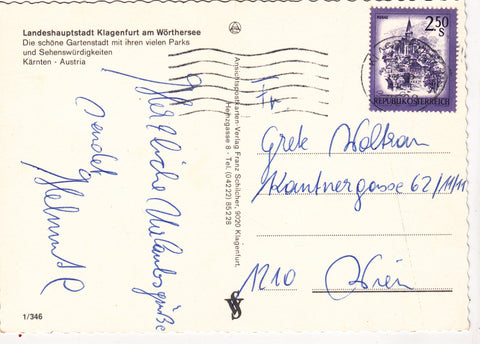 Landeshauptstadt Klagenfurt am Wörthersee
Die schöne Gartenstadt mit ihren vielen Parks
und Sehenswürdigkeiten
Kärnten - Austria
Herzliche Urlaubsgrüße
sendet
Helmut
1/346
Ansichtspostkarten-Verlag Franz Schilcher, 9020 Klagenfurt,
gasse 8 - Tel. (04222) 85228
2.50
S
REPUBLIK ÖSTERREICH
Fr.
Grete Woltran
Kantnergasse 62/11/11
1210 Wien